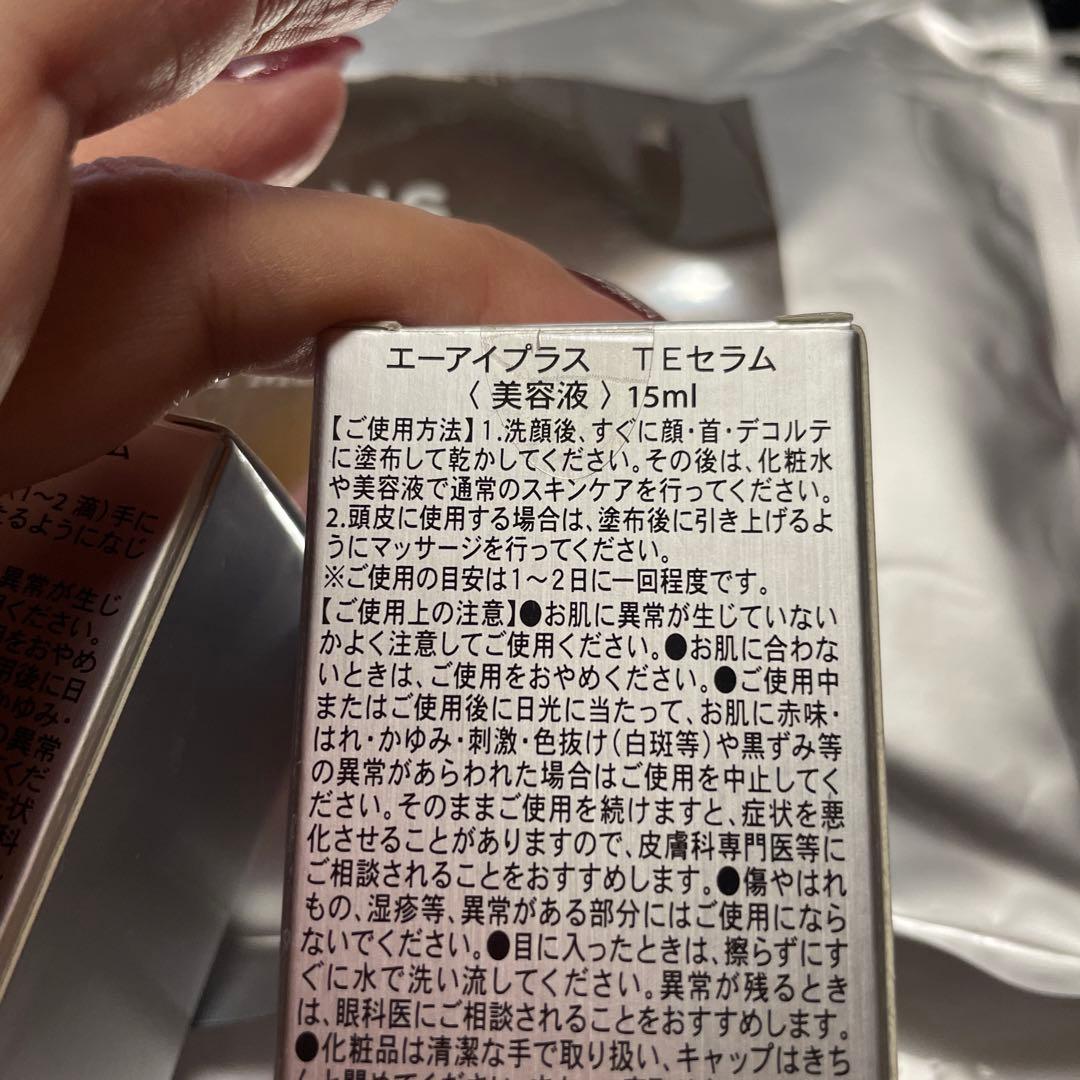 エーアイプラス　TEセラム
〈 美容液 〉 15ml
【ご使用方法】1.洗顔後、すぐに顔・首・デコルテ
に塗布して乾かしてください。その後は、化粧水
や美容液で通常のスキンケアを行ってください。
2.頭皮に使用する場合は、塗布後に引き上げるよ
うにマッサージを行ってください。
※ご使用の目安は1～2日に一回程度です。
【ご使用上の注意】●お肌に異常が生じていない
かよく注意してご使用ください。●お肌に合わな
いときは、ご使用をおやめください。●ご使用中
またはご使用後に日光に当たって、お肌に赤味・
はれ・かゆみ・刺激・色抜け(白斑等)や黒ずみ等
の異常があらわれた場合はご使用を中止してく
ださい。そのままご使用を続けますと、症状を悪
化させることがありますので、皮膚科専門医等に
ご相談されることをおすすめします。●傷やはれ
もの、湿疹等、異常がある部分にはご使用になら
ないでください。●目に入ったときは、擦らずにす
ぐに水で洗い流してください。異常が残るとき
は、眼科医にご相談されることをおすすめします。
●化粧品は清潔な手で取り扱い、キャップはきち
ム
(1～2 滴)手に
せるようになじ
異常が生じ
ください。
をおやめ
用後に日
かゆみ・
の異常
くだ
症状
科